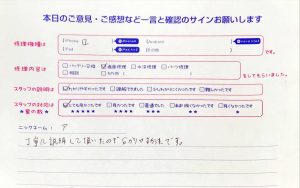 本日のご意見・ご感想など一言と確認のサインお願いします
修理機種は
iPhone 12
Android
iPad
です。
修理内容は
バッテリー交換 画面修理 水没修理 パーツ修理
をしてもらいました。
スタッフの説明は
わかりやすかったです 理解できました 少しわかりにくかったです 難しかったです
スタッフの対応は
とても良かったです 良かったです 普通でした あまり良くなかったです 良くなかったです
★星の数★
★★★★★ ★★★★ ★★★ ★★ ★
ニックネーム: ア
丁寧に説明して頂いたのでわかりやすかったです。